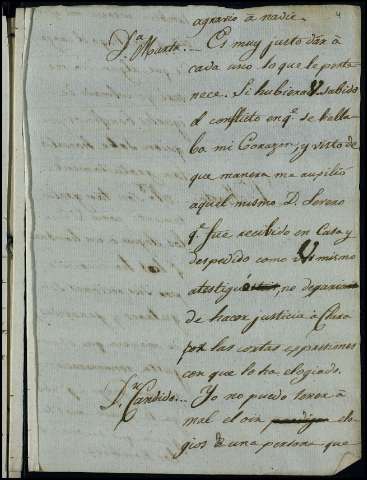 agravio a nadie. 4
D.ª Marta. — Es muy justo dar à
cada uno lo que le perte
nece. Si hubiera V. sabido
el conflicto en q.e se halla
ba mi Corazon, y visto de
que manera me auxilió
aquel mismo D. Severo
q.e fue recibido en Casa y
despedido como V. mismo
atestigua, no
de hacer justicia à
por las cortas expresiones
con que lo ha elogiado.
D.n Candido. — Yo no puedo tener à
mal el oir elo
gios de una persona que